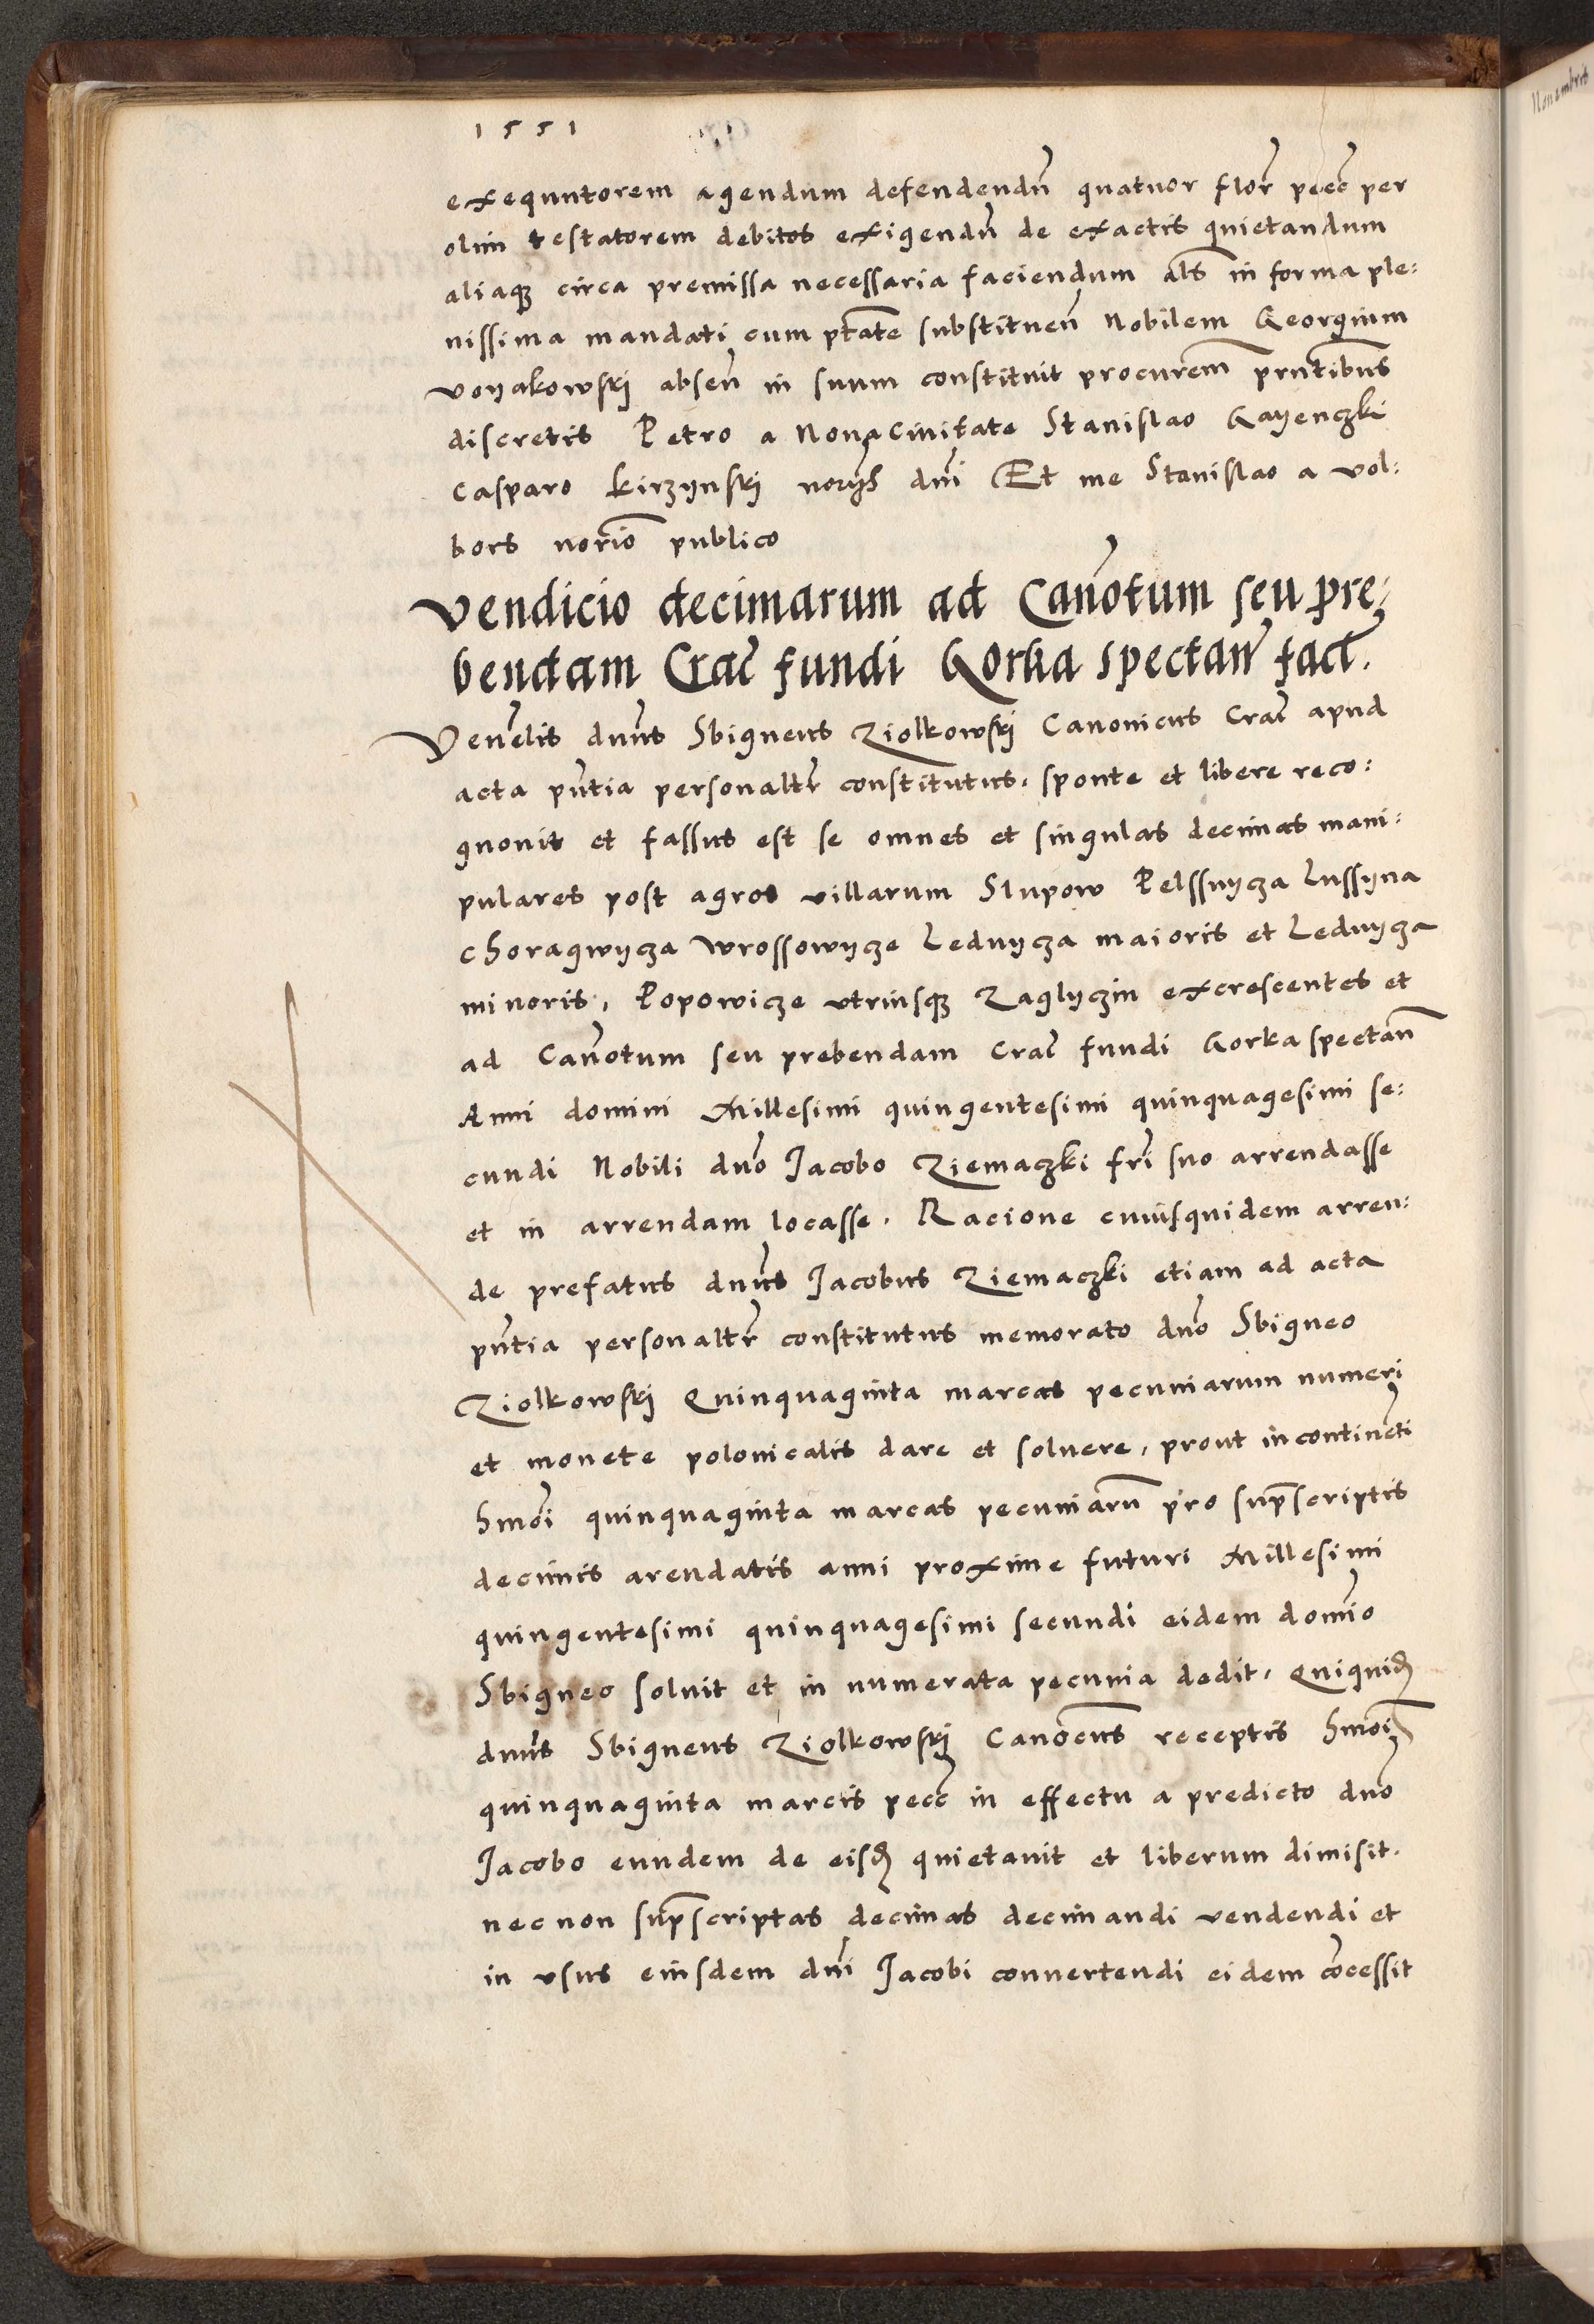 1551
exequutorem agendum defendendũ quatuor florẽ pecẽ per
olim testatorem debitos exigendũ de exactis quietandum
aliaqȝ circa premissa necessaria faciendum als̃ in forma ple:
nissima mandati cum ptãte substituen̄ Nobilem Georgium
voyakowskj absen̄ in suum constituit procurem̄ prn̄tibus
discretis Petro a Nouaciuitate Stanislao Gayenczki
Casparo Kirzynskj norijs dn̄i Et me Stanislao a vol:
bors norio̅ publico
Vendicio decimarum ad Canõtum seu pre:
bendam Crac̃ fundi Gorka spectan̄ fact̃.
Venẽlis dnũs Sbigneus Ziolkowskj Canonicus Crac̃ apud
acta pñtia personaltr̃ constitutus, sponte et libere reco:
gnouit et fassus est se omnes et singulas decimas mani:
pulares post agros villarum Slupow Pelssnycza Lussyna
Choragwycza Wrossowycze Lednycza maioris et Lednycza
minoris, Popowicze vtriusqȝ Zaglyczin excrescentes et
ad Canõtum seu prebendam Crac̃ fundi Gorka spectan̄
Anni domini Millesimi quingentesimi quinquagesimi se:
cundi Nobili dño Jacobo Ziemaczki frĩ suo arrendasse
et in arrendam locasse. Racione cuiusquidem arren:
de prefatus dnũs Jacobus Ziemaczki etiam ad acta
pñtia personaltr̃ constitutus memorato dño Sbigneo
Ziolkowskj Quinquaginta marcas pecuniarum numeri
et monete polonicalis dare et soluere, prout incontinẽti
hmõi quinquaginta marcas pecuniarũ pro sup̃scriptis
decimis arendatis anni proxime futuri Millesimi
quingentesimi quinquagesimi secundi eidem domĩo
Sbigneo soluit et in numerata pecunia dedit, Quiquidȝ
dnũs Sbigneus Ziolkowskj Canõcus receptis hmõi
quinquaginta marcis pecc̃ in effectu a predicto dño
Jacobo eundem de eisdȝ quietauit et liberum dimisit.
nec non sup̃scriptas decimas decimandi vendendi et
in vsus eiusdem dñi Jacobi conuertendi eidem cõcessit